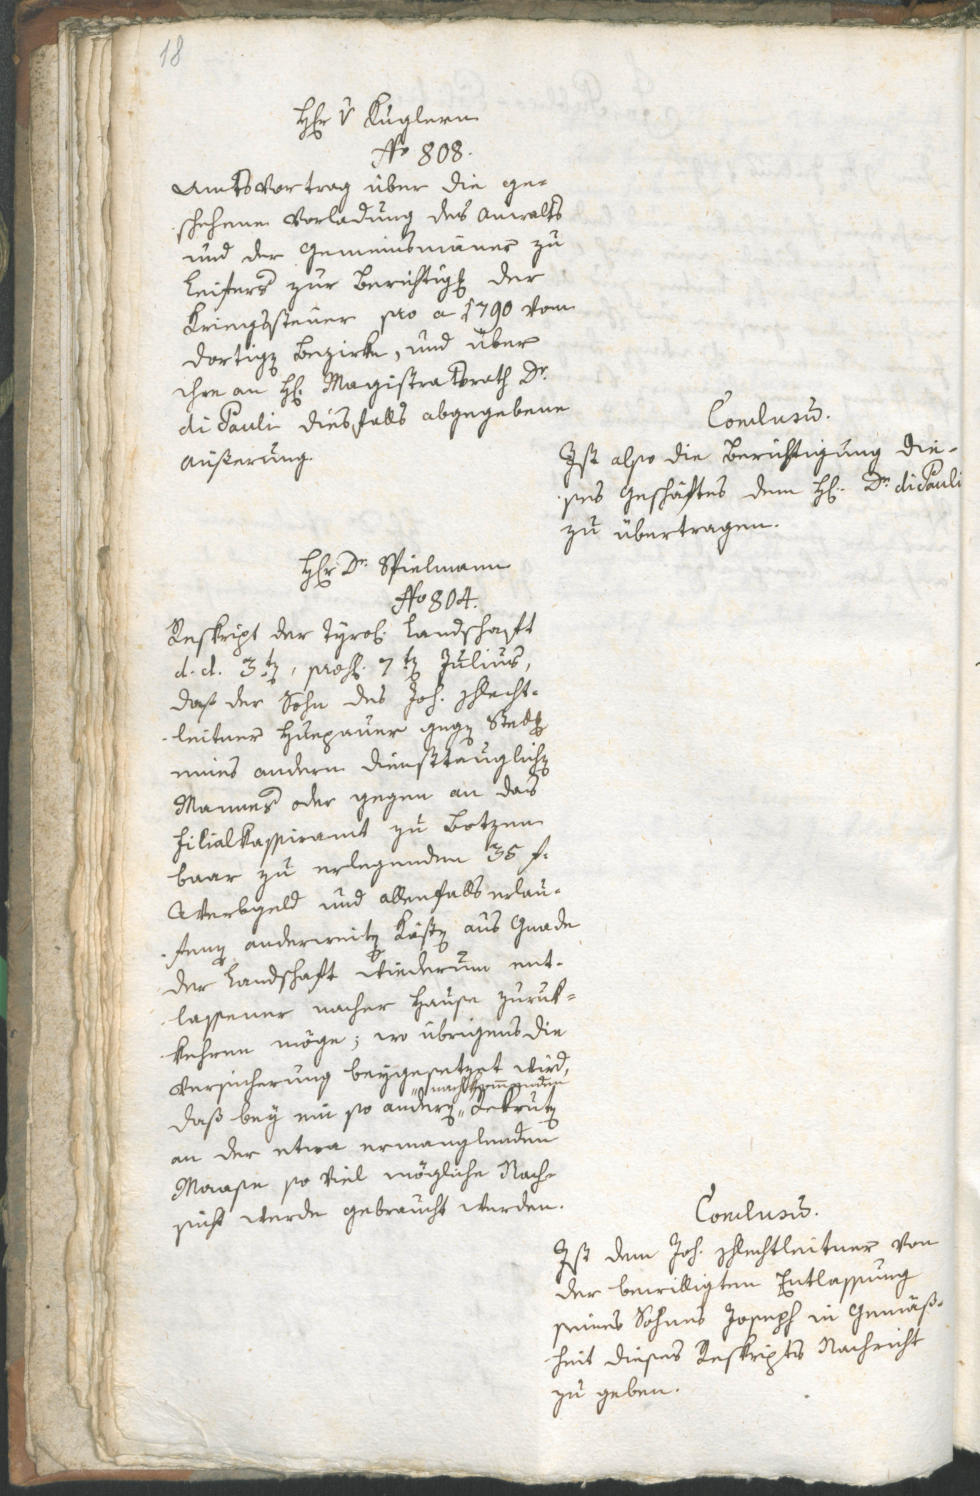 18
Hr v Kuglern
No 808.
Amtsvortrag über die ge-
schehene Vorladung des Anwalts
und der Gemeinsmäner zu
Leifers zur Berichtigg der
Kriegssteuer pro a 1790 vom
dortigen Bezirke, und über
ihre an H. Magistratsrath Dr.
di Pauli diesfalls abgegebene
Äußerung.
Conclusum.
Ist also die Berichtigung die-
ses Geschäftes dem H. Dr. di Pauli
zu übertragen.
Hr Dr. Spielmann
No 804.
Reskript der Tyrol. Landschaft
d. d. 3ten, praes. 7ten Julius,
daß der Sohn des Joh. Schlecht-
leitner gegen Stellg
eines andern diensttauglichen
Mannes oder gegen an das
Filialkassieramt zu Botzen
baar zu erlegenden 35 f.
Werbgeld und allenfalls erlau-
fenen anderweiten Kösten aus Gnade
der Landschaft wiederum ent-
lassener nacher Hause zuruk-
kehren möge; wo übrigens die
Versicherung beygesetzet wird,
daß bey ein so andern „nachkommenden“ Rekruten
an der etwa ermanglenden
Maase so viel mögliche Nach-
sicht werde gebraucht werden.
Conclusum.
Ist dem Joh. Schlechtleitner von
der bewilligten Entlassung
seines Sohnes Joseph in Gemäß-
heit dieses Reskripts Nachricht
zu geben.